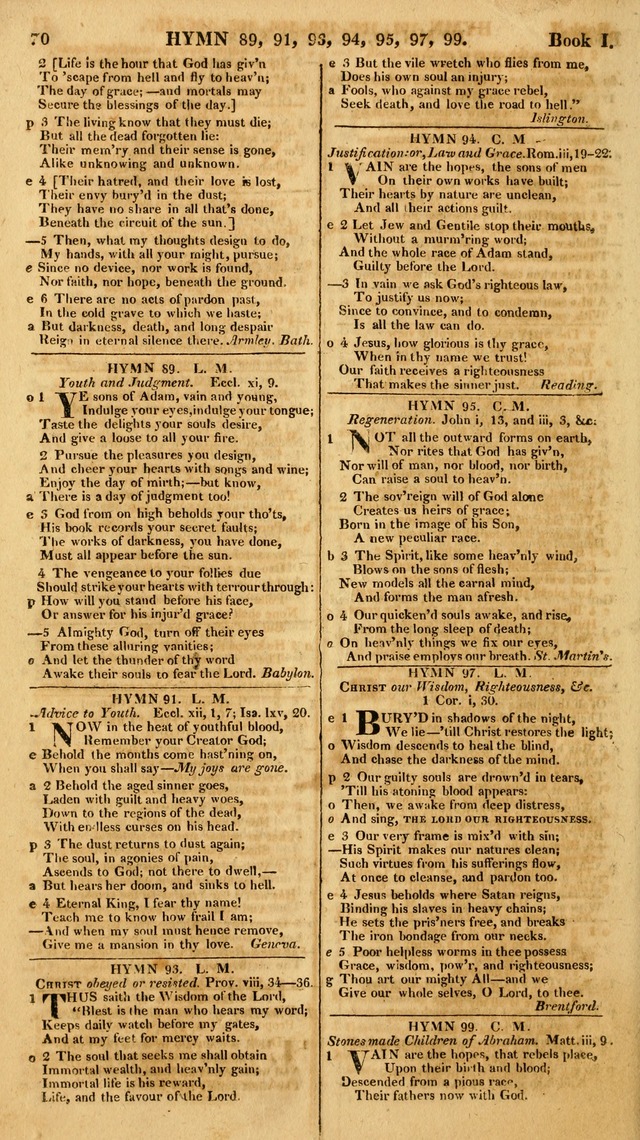 70 HYMN 89, 91, 93, 94, 95, 97, 99. Book I.
2 [Life is the hour that God has giv'n
To 'scape from hell and fly to heav'n;
The day of grace; —and mortals may
Secure the blessings of the day.]
p 3 The living know that they must die;
But all the dead forgotten lie:
Their mem'ry and their sense is gone,
Alike unknowing and unknown.
e 4 [Their hatred, and their love is lost,
Their envy bury'd in the dust;
They have no share in all that's done,
Beneath the circuit of the sun.]
—5 Then, what my thoughts design to do,
My hands, with all your might, pursue;
e Since no device, nor work is found,
Nor faith, nor hope, beneath the ground.
e 6 There are no acts of pardon past,
In the cold grave to which we haste;
a But darkness, death, and long despair
Reign in eternal silence there. Armley. Bath.
HYMN 89. L. M.
Youth and Judgment. Eccl. xi, 9.
o 1 YE sons of Adam, vain and young,
Indulge your eyes, indulge your tongue;
Taste the delights your souls desire,
And give a loose to all your fire.
2 Pursue the pleasures you design,
And cheer your hearts with songs and wine;
Enjoy the day of mirth;—but know,
a There is a day of judgment too!
e 3 God from on high beholds your tho'ts,
His book records your secret faults;
The works of darkness, you have done,
Must all appear before the sun.
4 The vengeance to your follies due
Should strike your hearts with terrour through:
p How will you stand before his face,
Or answer for his injur'd grace?
—5 Almighty God, turn off their eyes
From these alluring vanities;
o And let the thunder of thy word
Awake their souls to fear the Lord. Babylon.
HYMN 91. L. M.
Advice to Youth. Eccl. xii, 1, 7; Isa. lxv, 20.
1 NOW in the heat of youthful blood,
Remember your Creator God;
e Behold the months come hast'ning on,
When you shall say—My joys are gone.
a 2 Behold the aged sinner goes,
Laden with guilt and heavy woes,
Down to the regions of the dead,
With endless curses on his head.
p 3 The dust returns to dust again;
The soul, in agonies of pain,
Ascends to God; not there to dwell,—
a But hears her doom, and sinks to hell.
e 4 Eternal King, I fear thy name!
Teach me to know how frail I am;
—And when my soul must hence remove,
Give me a mansion in thy love. Geneva.
HYMN 93. L. M.
CHRIST obeyed or resisted. Prov. viii, 34—36.
1 THUS saith the Wisdom of the Lord,
"Blest is the man who hears my word;
Keeps daily watch before my gates,
And at my feet for mercy waits.
o 2 The soul that seeks me shall obtain
Immortal wealth, and heav'nly gain;
Immortal life is his reward,
Life, and the favour of the Lord.
e 3 But the vile wretch who flies from me,
Does his own soul an injury;
a Fools, who against my grace rebel,
Seek death, and love the road to hell."
Islington.
HYMN 94. C. M
Justification: or, Law and Grace. Rom. iii, 19-22.
1 VAIN are the hopes, the sons of men
On their own works have built;
Their hearts by nature are unclean,
And all their actions guilt.
e 2 Let Jew and Gentile stop their mouths,
Without a murm'ring word;
And the whole race of Adam stand,
Guilty before the Lord.
—3 In vain we ask God's righteous law,
To justify us now;
Since to convince, and to condemn,
Is all the law can do.
o 4 Jesus, how glorious is thy grace,
When in thy name we trust!
Our faith receives a righteousness
That makes the sinner just. Reading.
HYMN 95. C. M.
Regeneration. John i, 13, and iii, 3, &c.
1 NOT all the outward forms on earth,
Nor rites that God has giv'n,
Nor will of man, nor blood, nor birth,
Can raise a soul to heav'n.
2 The sov'reign will of God alone
Creates us heirs of grace;
Born in the image of his Son,
A new peculiar race.
b 3 The Spirit, like some heav'nly wind,
Blows on the sons of flesh;
New models all the carnal mind,
And forms the man afresh.
o 4 Our quicken'd souls awake, and rise,
From the long sleep of death;
o On heav'nly things we fix our eyes,
And praise employs our breath. St. Martin's.
HYMN 97. L. M.
CHRIST our Wisdom, Righteousness, &c.
1 Cor. i, 30.
e 1 BURY'D in shadows of the night,
We lie—'till Christ restores the light;
o Wisdom descends to heal the blind,
And chase the darkness of the mind.
p 2 Our guilty souls are drown'd in tears,
'Till his atoning blood appears:
o Then, we awake from deep distress,
o And sing, THE LORD OUR RIGHTEOUSNESS.
e 3 Our very frame is mix'd with sin;
—His Spirit makes our natures clean;
Such virtues from his sufferings flow,
At once to cleanse, and pardon too.
e 4 Jesus beholds where Satan reigns,
Binding his slaves in heavy chains;
He sets the pris'ners free, and breaks
The iron bondage from our necks.
e 5 Poor helpless worms in thee possess
Grace, wisdom, pow'r, and righteousness;
g Thou art our mighty All—and we
Give our whole selves, O Lord, to thee.
Brentford.
HYMN 99. C. M.
Stones made Children of Abraham. Matt. iii, 9.
1 VAIN are the hopes, that rebels place,
Upon their birth and blood;
Descended from a pious race,
Their fathers now with God.